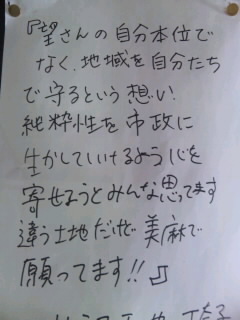 『望さんの自分本位で
なく、地域を自分たち
で守るという想い
純粋性を市政に
生かしていけるよう心を
寄せようとみんな思ってます
違う土地だけど美麻で
願ってます!!』